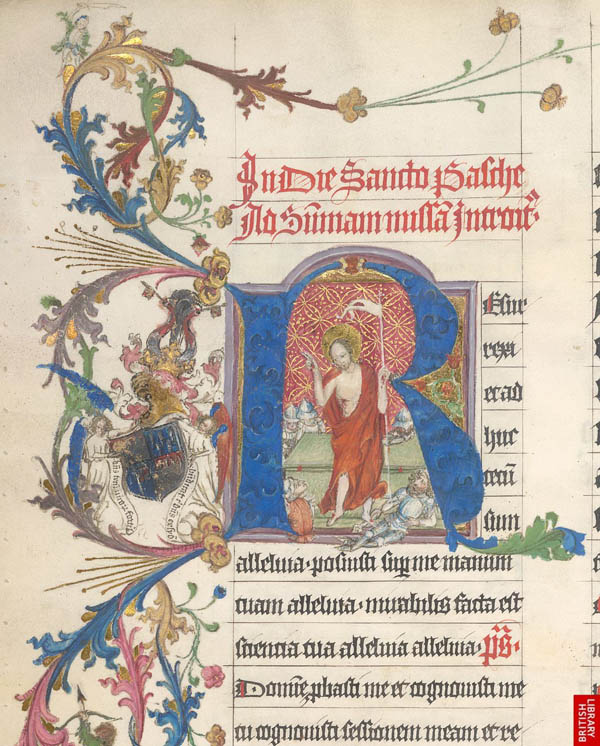 In Die Sancto Pasche
Ad Sūmam missā Introit9
R
Esur
rexi
et ad
huc
tecū
sum
alleluia · posuisti sup me manum
tuam alleluia · mirabilis facta est
sciencia tua alleluia alleluia · ps̄ ·
Domīe p̱basti me et cognouisti me
tu cognouisti sessionem meam et re
BRITISH
LIBRARY